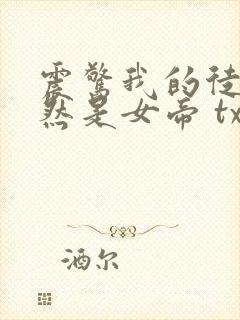 震惊我的徒
然是女帝 tx
酒尔